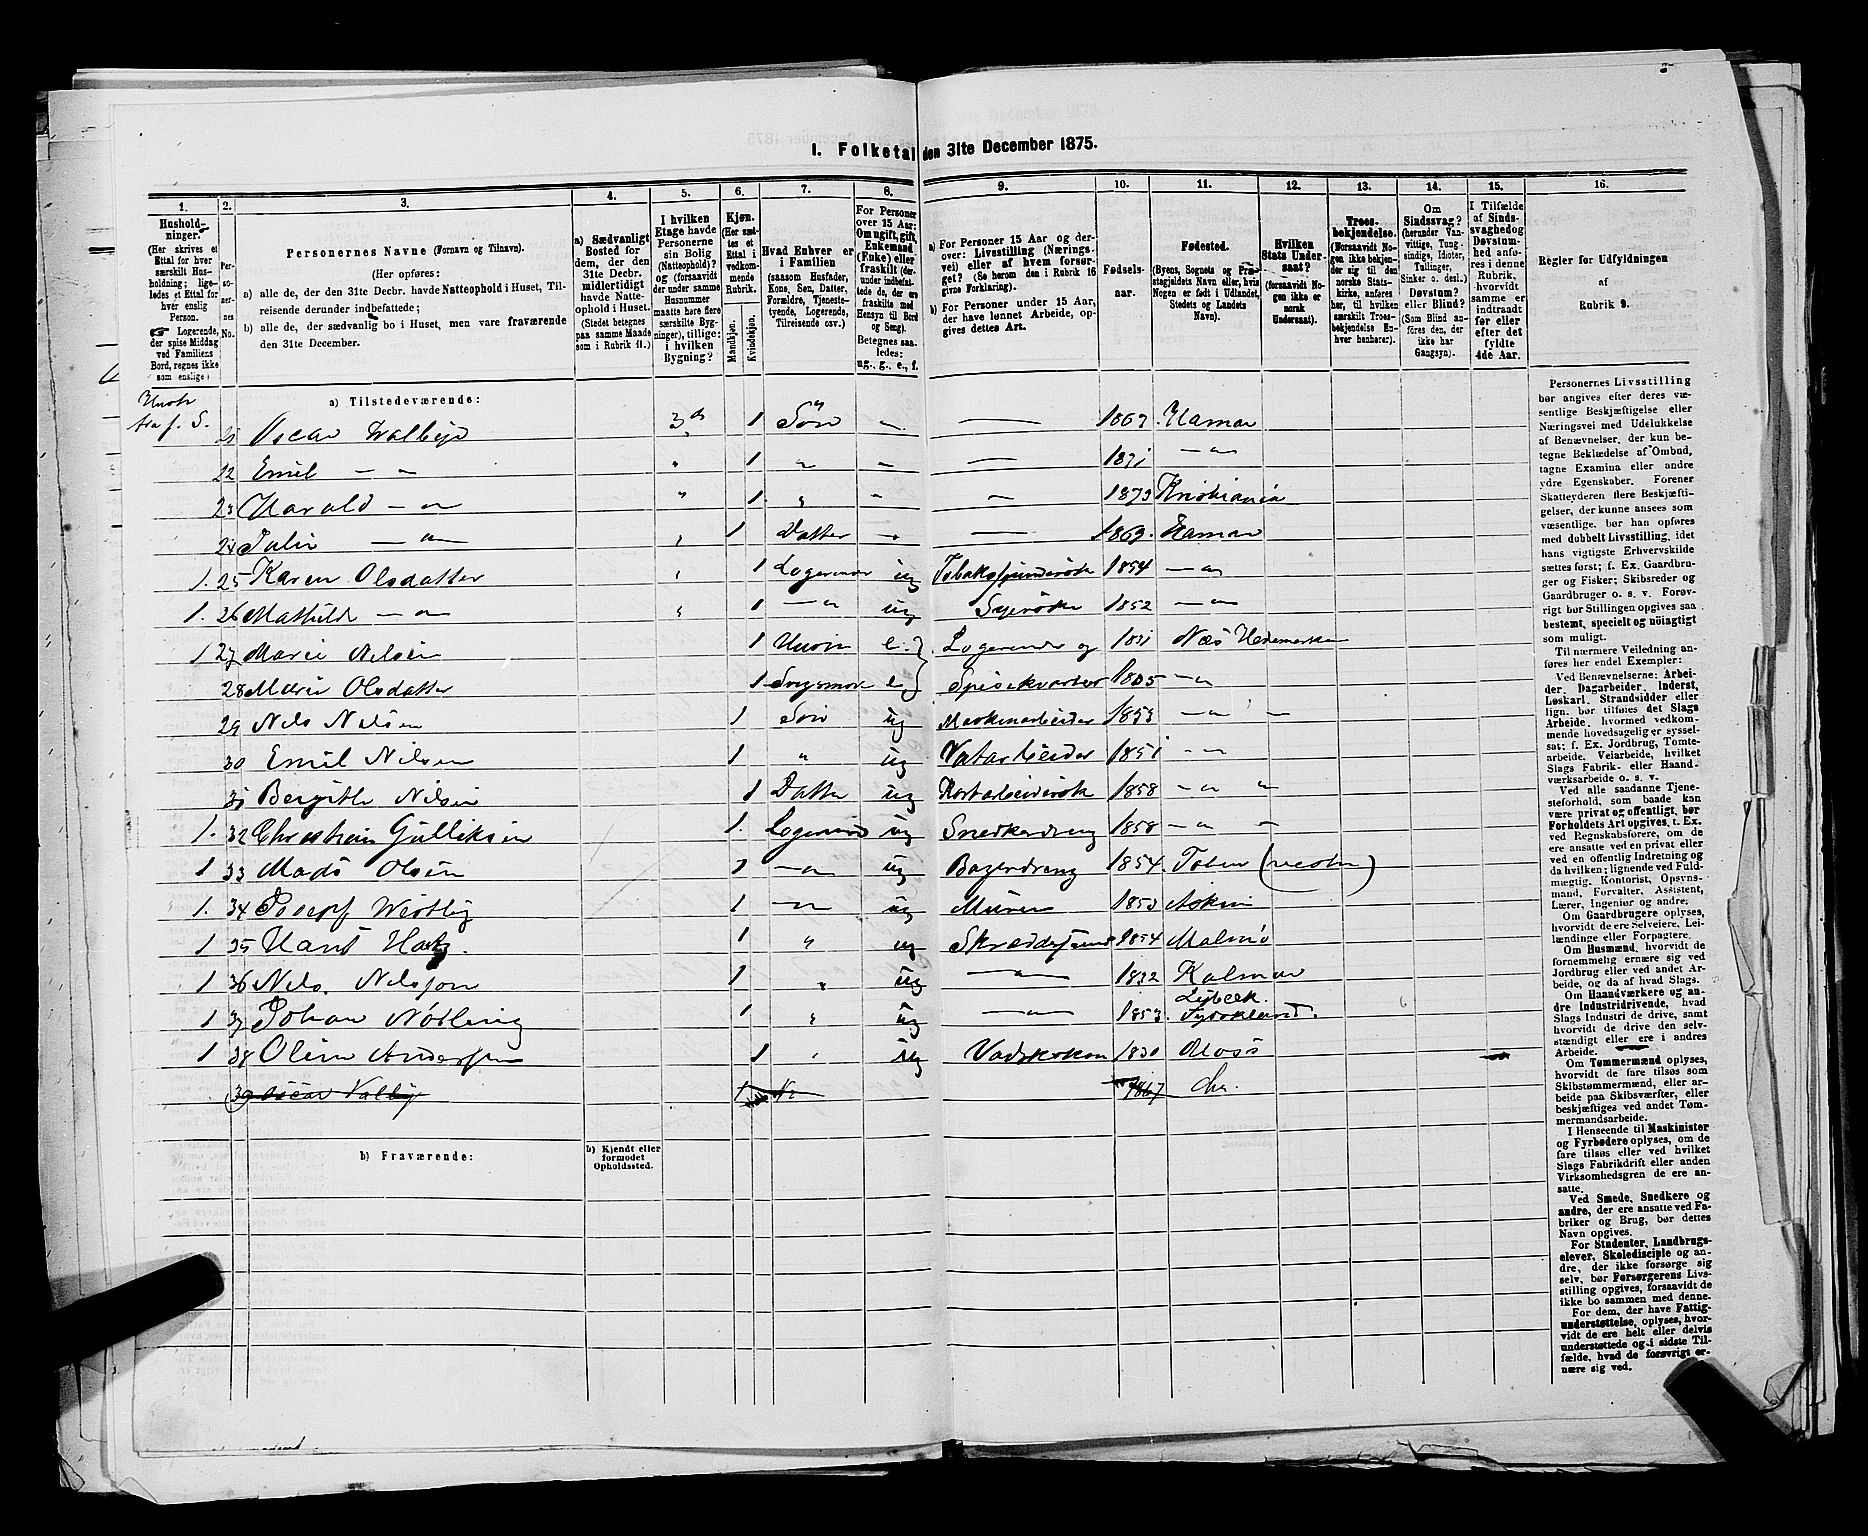 I. Folketal den 31te December 1875.
1. 2. 3. 4. 5. 6. 7. 8. 9. 10. 11. 12. 13. 14. 15. 16.
Hushold-
ninger.
(Her skrives et
Ettal for hver
særskilt Hus-
holdning; lige-
ledes et Ettal for
hver enslig
Person.
☞ Logerende,
der spise Middag
ved Familiens
Bord, regnes ikke
som enslige)
Per-
so-
ner-
nes
No.
Personernes Navne (Fornavn og Tilnavn).
(Her opføres:
a) alle de, der den 31te Decbr. havde Natteophold i Huset, Til-
reisende derunder indbefattede;
b) alle de, der sædvanlig bo i Huset, men vare fraværende
den 31te December.
a) Sædvanligt
Bosted for
dem, der den
31te Decbr.
midlertidigt
havde Natte-
ophold i Huset.
(Stedet betegnes
paa samme Maade
som i Rubrik 11.)
I hvilken
Etage havde
Personerne
sin Bolig
(Natteophold)?
og (forsaavidt
der under samme
Husnommer
maatte høre flere
særskilte Byg-
ninger), tillige:
i hvilken
Bygning?
Kjøn.
(Her sæt-
tes et
Ettal i
vedkom-
mende
Rubrik.
Mandkjøn.
Kvindekjøn.
Hvad Enhver er
i Familien
(saasom Husfader,
Kone, Søn, Datter,
Forældre, Tjeneste-
tyende, Logerende,
Tilreisende osv.)
For Personer
over 15 Aar:
Om ugift, gift,
Enkemand
(Enke) eller
fraskilt (der-
under indbefat-
tede de, der ere
fraskilte med
Hensyn til Bord
og Seng).
Betegnes saa-
ledes:
ug., g., e., f.
a) For Personer 15 Aar og der-
over: Livsstilling (Nærings-
vei) eller af hvem forsør-
get? (Se herom den i Rubrik 16
givne Forklaring).
b) For Personer under 15 Aar,
der have lønnet Arbeide, op-
gives dettes Art.
Fødsels-
aar.
Fødested.
(Byens, Sognets og Præ-
stegjeldets Navn eller, hvis
Nogen er født i Udlandet,
Stedets og Landets
Navn).
Hvilken
Stats Under-
saat?
(forsaavidt No-
gen ikke er
norsk
Undersaat).
Troes-
bekjendelse.
(Forsaavidt No-
gen ikke bekjen-
der sig til den
norske Stats-
kirke, anføres
her, til hvilken
særskilt Troes-
bekjendelse En-
hver henhører).
Om
Sindssvag?
(herunder Van-
vittige, Tung-
sindige, Idioter,
Tullinger,
Sinker o. desl.)
Døvstum?
eller Blind?
(Som Blind an-
føres den, der
ikke har
Gangsyn).
I Tilfælde
af Sinds-
svaghed og
Døvstum-
hed anfø-
res i denne
Rubrik,
hvorvidt
samme er
indtraadt
før eller
efter det
fyldte
4de Aar.
Regler for Udfyldningen
af
Rubrik 9.
a) Tilstedeværende:
fra f. S.
21 Oscar Walbye 3 1 Søn — — 1867. Hamar
22 Emil — " — " 1 " — — 1871 — " —
23 Harald — " — " 1. " — — 1873 Kristiania
24 Julie — " — " 1 Datter — — 1869. Hamar
1. 25 Karen Olsdatter " 1 Logerende ug Tobaksspinderske 1854 — " —
1. 26 Mathilde — " — " 1 — " — ug Syerske 1852 — " —
1 27 Marie Nilsen 1 e. Logerende og Næs Hedemarken
28 Marie Olsdatter 1 Svigermor e. Spisekvarter 1805 — " —
29 Nils Nilsen 1 Søn ug Maskinarbeider 1853 — " —
30 Emil Nilsen 1 " ug Vatarbeider 1851 — " —
31 Bergithe Nilsen 1 Datter ug 1858 — " —
1. 32 Christian Gulliksen 1. Logerende ug Snedkerdreng 1858 — " —
1 33 Mads Olsen 1 — " — ug Bagerdreng 1854. Toten (vestre)
1. 34 Josepf Westby 1 — " — ug Murer 1853 Askim
1 35 Hans 1 " ug Skræddersvend 1854 Malmø
1 36 Nils Nilsson 1 " ug — " — 1832 Kalmar
1 37 Johan Nötling 1 " ug — " — 1853. Lybeck. Tyskland.
1 38 Oline Andersen 1 " ug Vadskekone 1830 Moss
39 Oscar Valby 1 1867 Chra.
b) Fraværende:
b) Kjendt eller
formodet
Opholdssted.
Personernes Livsstilling
bør angives efter deres væ-
sentlige Beskjæftigelse eller
Næringsvei med Udelukkelse
af Benævnelser, der kun be-
tegne Beklædelse af Ombud,
tagne Examina eller andre
ydre Egenskaber. Forener
Skatteyderen flere Beskjæfti-
gelser, der kunne ansees som
væsentlige, bør han opføres
med dobbelt Livsstilling, idet
hans vigtigste Erhvervskilde
sættes først; f. Ex. Gaardbru-
ger og Fisker; Skibsreder og
Gaardbruger o. s. v. Forøv-
rigt bør Stillingen opgives saa
bestemt, specielt og nöiagtigt
som muligt.
Til nærmere Veiledning an-
føres her endel Exempler:
Ved Benævnelserne: Arbei-
der, Dagarbeider, Inderst,
Løskarl, Strandsidder eller
lign. bør tilføies det Slags
Arbeide, hvormed vedkom-
mende hovedsagelig er syssel-
sat; f. Ex. Jordbrug, Tomte-
arbeide, Veiarbeide, hvilket
Slags Fabrik- eller Haand-
værksarbeide o. s. v.
Ved alle saadanne Tjene-
steforhold, som baade kan
være privat og offentligt, bør
Forholdets Art opgives, t. Ex.
ved Regnskabsførere, om de
ere ansatte ved en privat eller
ved en offentlig Indretning og
da hvilken; lignende ved Fuld-
mægtig, Kontorist, Opsyns-
mand, Forvalter, Assistent,
Lærer, Ingeniør og andre.
Om Gaardbrugere oplyses,
hvorvidt de ere Selveiere, Lei-
lændinge eller Forpagtere.
Om Husmænd, hvorvidt de
fornemmelig ernære sig ved
Jordbrug eller ved andet Ar-
beide, og da af hvad Slags.
Om Haandværkere og an-
dre Industridrivende, hvad
Slags Industri de drive, samt
hvorvidt de drive den selv-
stændigt eller ere i andres
Arbeide.
Om Tømmermænd oplyses,
hvorvidt de fare tilsøs som
Skibstømmermænd, eller ar-
beide paa Skibsværfter, eller
beskjæftiges ved andet Tøm-
mermandsarbeide.
I Henseende til Maskinister
og Fyrbødere oplyses, om de
fare tilsøs eller ved hvilket
Slags Fabrikdrift eller anden
Virksomhedsgren de ere an-
satte.
Ved Smede, Snedkere og
andre, der ere ansatte ved Fa-
briker og Brug, bør dettes
Navn opgives.
For Studenter, Landbrugs-
elever, Skoledisciple og an-
dre, der ikke forsørge sig
selv, bør Forsørgerens Livs-
stilling opgives, forsaavidt de
ikke bo sammen med denne.
For dem, der have Fattig-
understøttelse, oplyses, hvor-
vidt de ere helt eller delvis
understøttede og i sidste Til-
fælde, hvad de forøvrigt er-
nære sig ved.